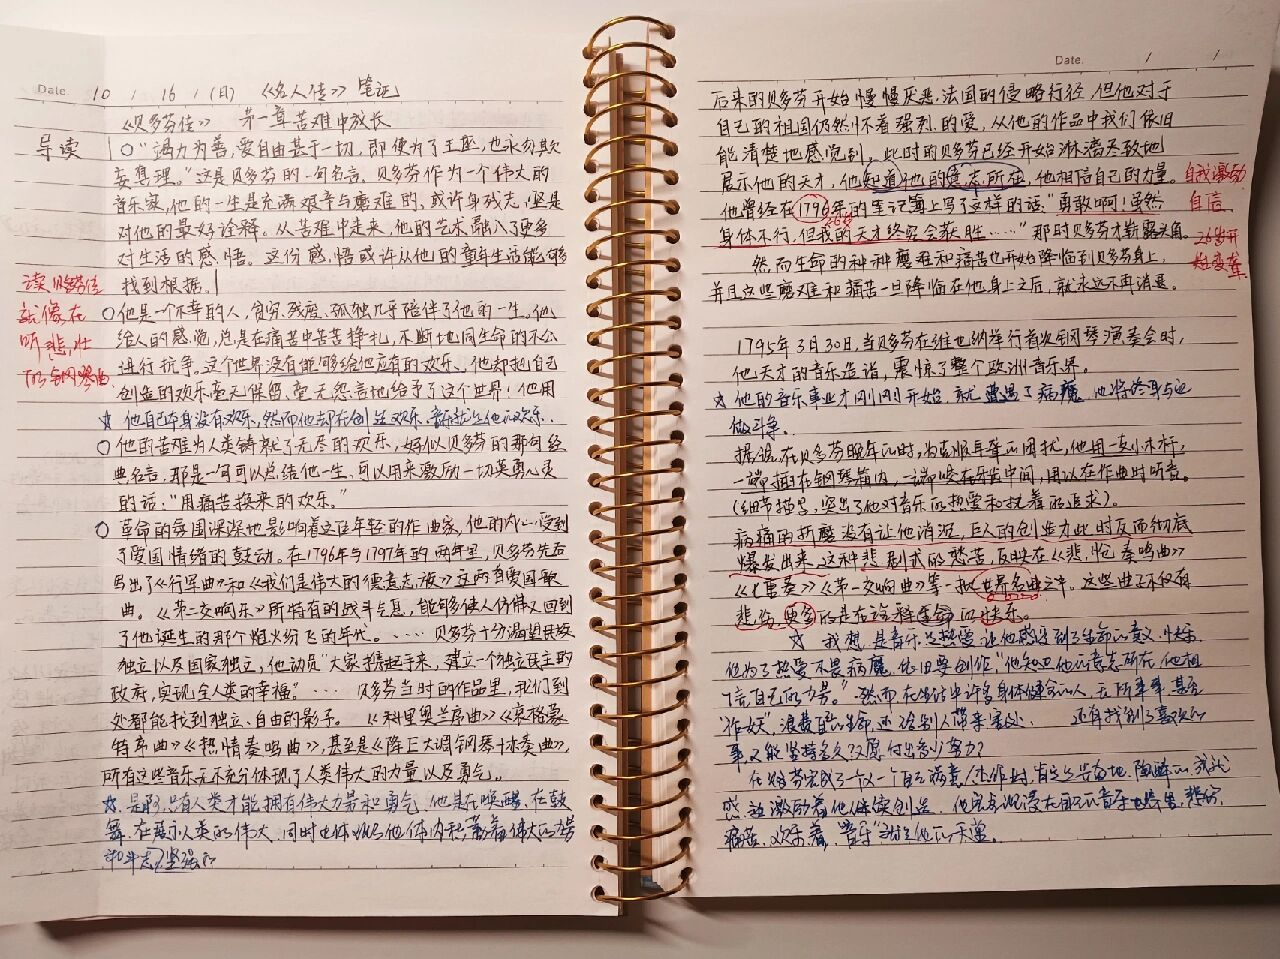 Date. 10 / 16 / (日) 《名人传》笔记
《贝多芬传》 第一章 苦难中成长
导读
○"竭力为善,爱自由甚于一切,即使为了王座,也永勿欺
妄真理。"这是贝多芬的一句名言。贝多芬作为一个伟大的
音乐家,他的一生是充满艰辛与磨难的,或许身残志坚是
对他的最好诠释。从苦难中走来,他的艺术融入了更多
对生活的感悟。这份感悟或许从他的童年生活能够
找到根据。
读贝多芬传
就像在
听悲壮
的钢琴曲
○他是一个不幸的人,贫穷、残废、孤独几乎陪伴了他的一生。他
给人的感觉总是在痛苦中苦苦挣扎,不断地同生命的不公
进行抗争。这个世界没有能够给他应有的欢乐,他却把自己
创造的欢乐毫无保留、毫无怨言地给予了这个世界!他用
☆ 他自己本身没有欢乐,然而他却在创造欢乐,音乐就是他的欢乐.
○他的苦难为人类铸就了无尽的欢乐,好似贝多芬的那句经
典名言,那是一句可以总结他一生,可以用来激励一切英勇心灵
的话:"用痛苦换来的欢乐。"
○ 革命的氛围深深地影响着这位年轻的作曲家,他的内心受到
了爱国情绪的鼓动。在1796年与1797年的两年里,贝多芬先后
写出了《行军曲》和《我们是伟大的德意志族》这两首爱国歌
曲。《第二交响乐》所特有的战斗气息,能够使人仿佛又回到
了他诞生的那个烟火纷飞的年代。…… 贝多芬十分渴望民族
独立以及国家独立,他动员"大家携起手来,建立一个独立民主的
政府,实现全人类的幸福"。… 贝多芬当时的作品里,我们到
处都能找到独立、自由的影子。《科里奥兰序曲》《哀格蒙
特序曲》《热情奏鸣曲》,甚至是《降E大调钢琴协奏曲》,
所有这些音乐无不充分体现了人类伟大的力量以及勇气。
☆ 是啊,只有人类才能拥有伟大力量和勇气,他是在唤醒、在鼓
舞、在展示人类的伟大,同时也体现了他体内积蓄着伟大的力量
和斗志,坚强的
Date. / /
后来的贝多芬开始慢慢厌恶法国的侵略行径,但他对于
自己的祖国仍然怀着强烈的爱,从他的作品中我们依旧
能清楚地感觉到。此时的贝多芬已经开始淋漓尽致地
展示他的天才,他知道他的意志所在,他相信自己的力量。
自我激励
他曾经在1796年的笔记簿上写了这样的话:"勇敢啊!虽然
自信
26岁
身体不行,但我的天才终究会获胜……"那时贝多芬才崭露头角。
26岁开
始变聋
然而生命的种种磨难和痛苦也开始降临到贝多芬身上,
并且这些磨难和痛苦一旦降临在他身上之后,就永远不再消退。
1795年3月30日,当贝多芬在维也纳举行首次钢琴演奏会时,
他天才的音乐造诣,震惊了整个欧洲音乐界。
☆ 他的音乐事业才刚刚开始,就遭遇了病魔,他将终身与之
做斗争。
据说,在贝多芬晚年的时,为克服耳聋的困扰,他用一支小木杆,
一端插在钢琴箱内,一端咬在牙齿中间,用以在作曲时听音。
(细节描写,突出了他对音乐的热爱和执着的追求)。
病痛的折磨没有让他消沉,巨人的创造力此时反而彻底
爆发出来,这种悲剧式的愁苦,反映在《悲怆奏鸣曲》
《七重奏》《第一交响曲》等一批世界名曲之中。这些曲子不仅有
悲伤,更多的是在诠释生命的快乐。
☆ 我想,是音乐是热爱让他感受到了生命的意义、快乐
他为了热爱不畏病魔,依旧要创作"他知道他的意志所在,他相
信自己的力量。"然而在生活中许多身体健全的人,无所事事,甚至
"作妖",浪费自己生命,还给别人带来害处. 还有找到了喜欢的
事又能坚持多久?又愿付出多少努力?
任贝多芬完成了一个又一个自己满意的作品时,肯定会很
感激激励着他继续创造,他完全沉浸在自己的音乐世界里,悲伤,
痛苦、欢乐着,"音乐"就是他的天堂。